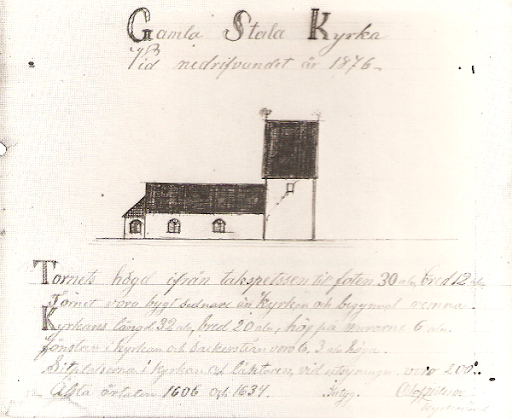 Gamla Stala Kyrka
Vid nedrifvandet år 1876.
Tornets högd ifrån takspetssen til foten 30 aln, bred 12 aln
Tornet vora bygt sednare än Kyrkan och begynnel
Kyrkans längd 32 aln, bred 20 aln, hög på murarne 6 aln.
Fönstren i kyrkan och Sackerstian voro 6, 3 aln höga.
Sitplatserna i kyrkan och läktaren, vid voro 200.
årtalen 1606 och 1637. Intyg.